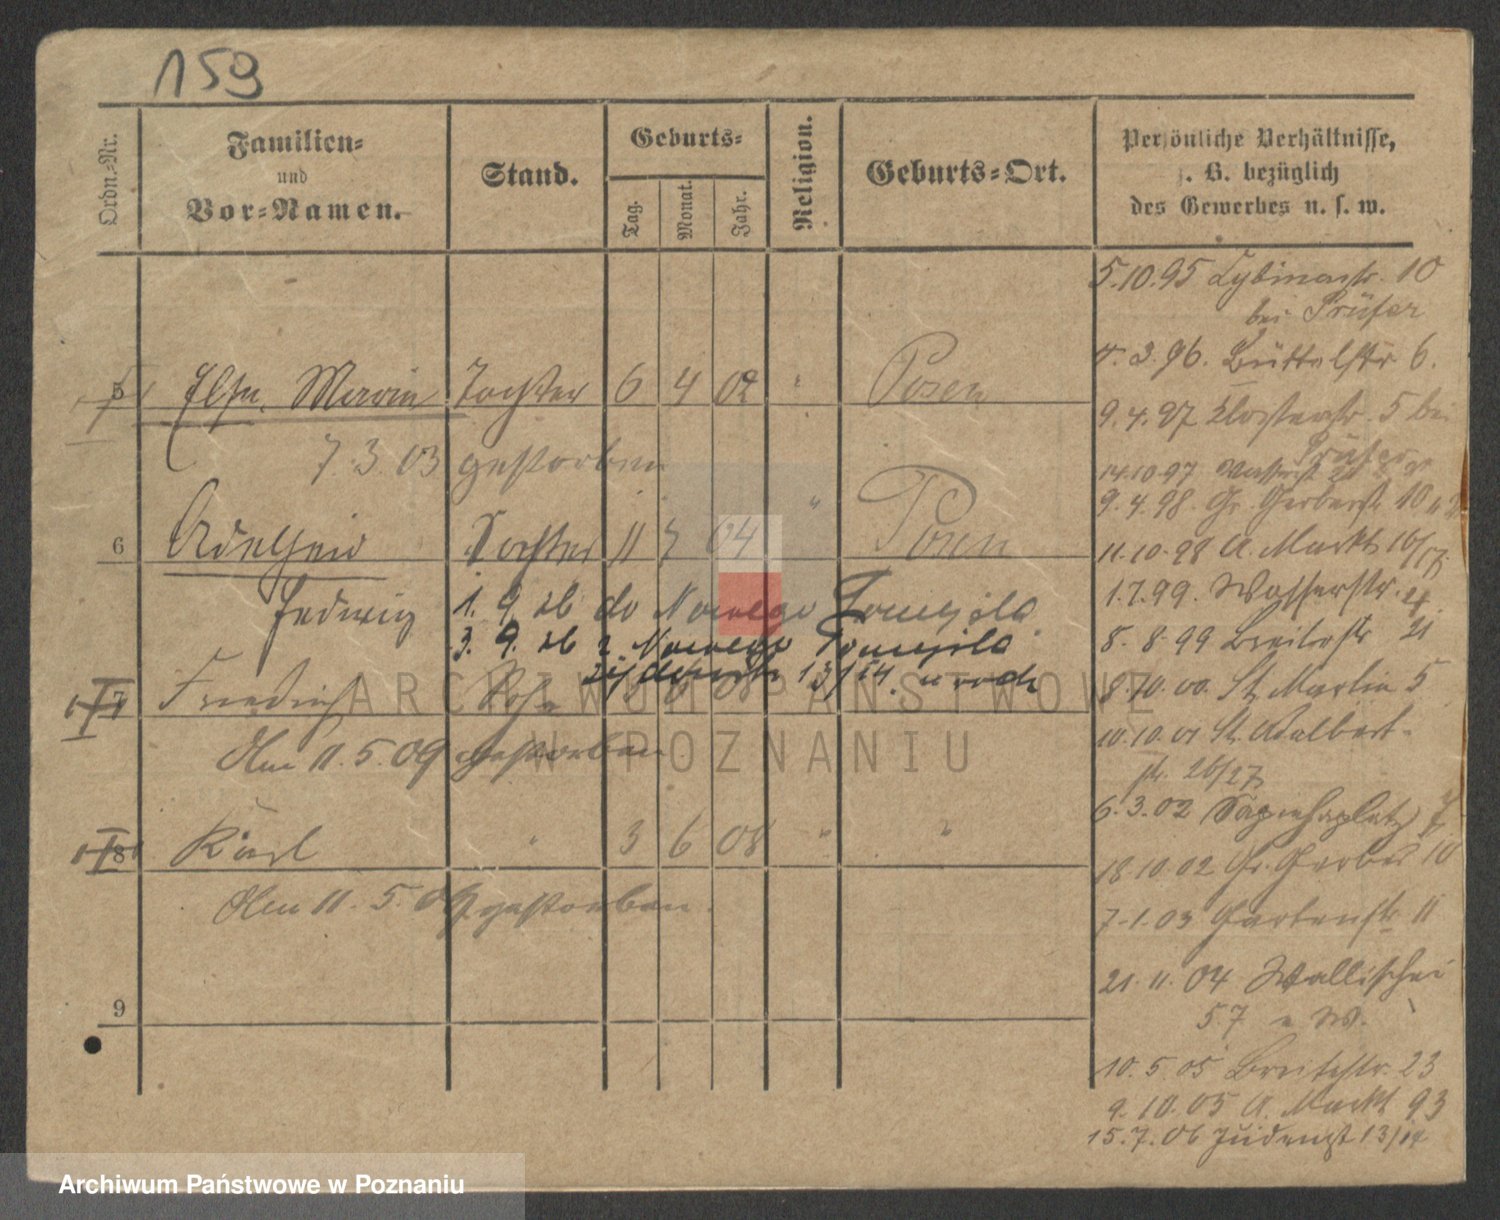 159
Ordn.-Nr.
Familien-
und
Vor-Namen.
Stand.
Geburts-
Tag.
Monat.
Jahr.
Religion.
Geburts-Ort.
Persönliche Verhältnisse,
z. B. bezüglich
des Gewerbes u. s. w.
5 Maria Tochter 6 4 02 " Posen
7.3.03 gestorben
6 Adelheid Tochter 11 7 04 " Posen
Hedwig
1. 9. 26 do Nowego Tomyśla
3. 9. 26 z Nowego Tomyśla
13/14.
7 Friedrich
Am 11.5.09 gestorben
8 Karl " 3 6 08 " "
Am 11.5.09 gestorben.
9
5.10.95 10
bei Prüfer
3.96. Büttelstr 6.
9.4.97 Klosterstr. 5 bei
Prüfer
14.10.97
9.4.98. Gr. Gerberstr 10
11.10.98 A. Markt 16/17.
1.7.99. Wasserstr.
8. 8. 99 Breitestr 21
8.10.00. St. Martin 5
10.10.01 St. Adalbert-
str. 26/27
6.3.02 Sapiehaplatz
18.10.02 Gr. Gerber 10
7.1.03 Gartenstr 11
21.11.04 Wallischei
57
10.5.05 Breitestr. 23
9.10.05 A. Markt 93
15.7.06 Judenst 13/14
ARCHIWUM PAŃSTWOWE
W POZNANIU
Archiwum Państwowe w Poznaniu